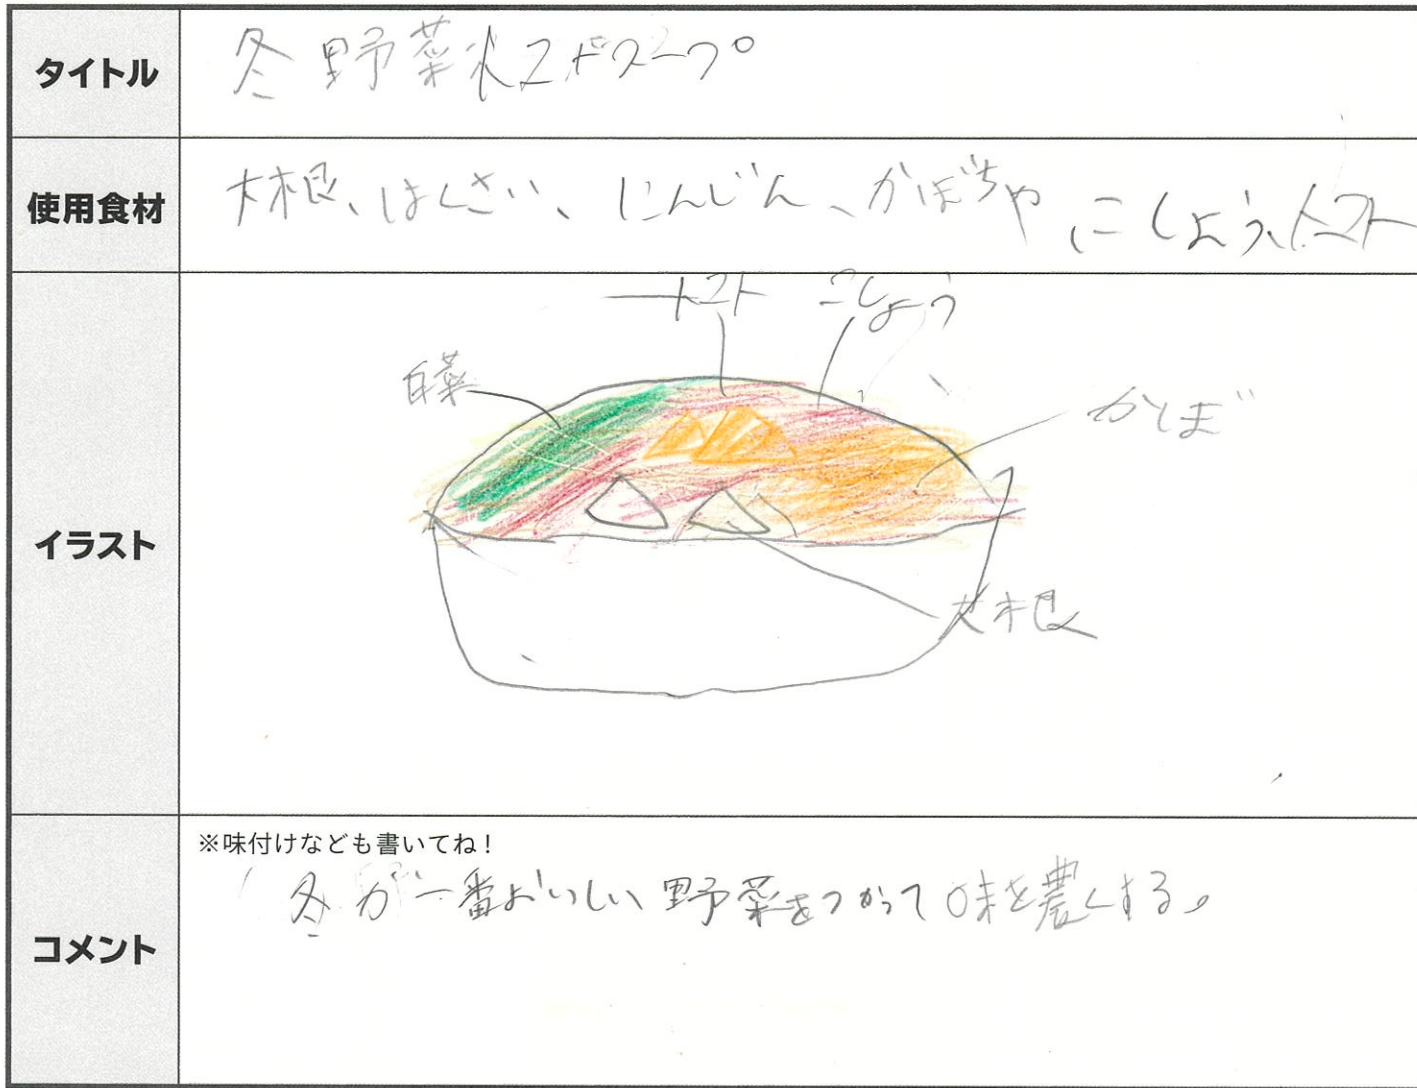 タイトル
冬野菜スープ
使用食材
大根、はくさい、にんじん、かぼちゃ、こしょう、トマト
イラスト
トマト こしょう
白菜
かぼ
大根
コメント
※味付けなども書いてね!
冬が一番おいしい野菜をつかって味を農くする。